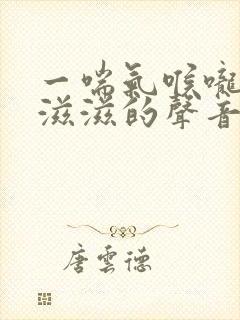 一喘氣喉嚨
滋滋的聲音
唐雲德